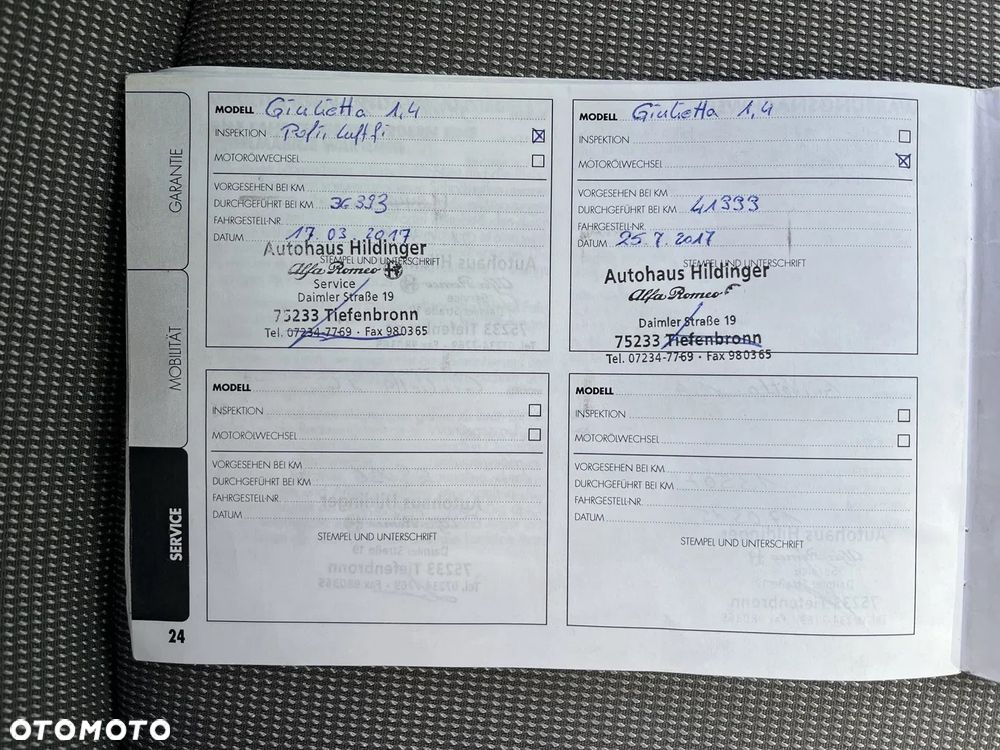 GARANTIE
MOBILITÄT
SERVICE
24
MODELL Giulietta 1,4
INSPEKTION
MOTORÖLWECHSEL
VORGESEHEN BEI KM
DURCHGEFÜHRT BEI KM 36393
FAHRGESTELL-NR.
DATUM 17.03.2017
Autohaus Hildinger
STEMPEL UND UNTERSCHRIFT
Alfa Romeo
Service
Daimler Straße 19
75233 Tiefenbronn
Tel. 07234-7769 · Fax 980365
MODELL Giulietta 1,4
INSPEKTION
MOTORÖLWECHSEL
VORGESEHEN BEI KM
DURCHGEFÜHRT BEI KM 41393
FAHRGESTELL-NR.
DATUM 25.7.2017
STEMPEL UND UNTERSCHRIFT
Autohaus Hildinger
Alfa Romeo
Daimler Straße 19
75233 Tiefenbronn
Tel. 07234-7769 · Fax 980365
MODELL
INSPEKTION
MOTORÖLWECHSEL
VORGESEHEN BEI KM
DURCHGEFÜHRT BEI KM
FAHRGESTELL-NR.
DATUM
STEMPEL UND UNTERSCHRIFT
MODELL
INSPEKTION
MOTORÖLWECHSEL
VORGESEHEN BEI KM
DURCHGEFÜHRT BEI KM
FAHRGESTELL-NR.
DATUM
STEMPEL UND UNTERSCHRIFT
OTOMOTO